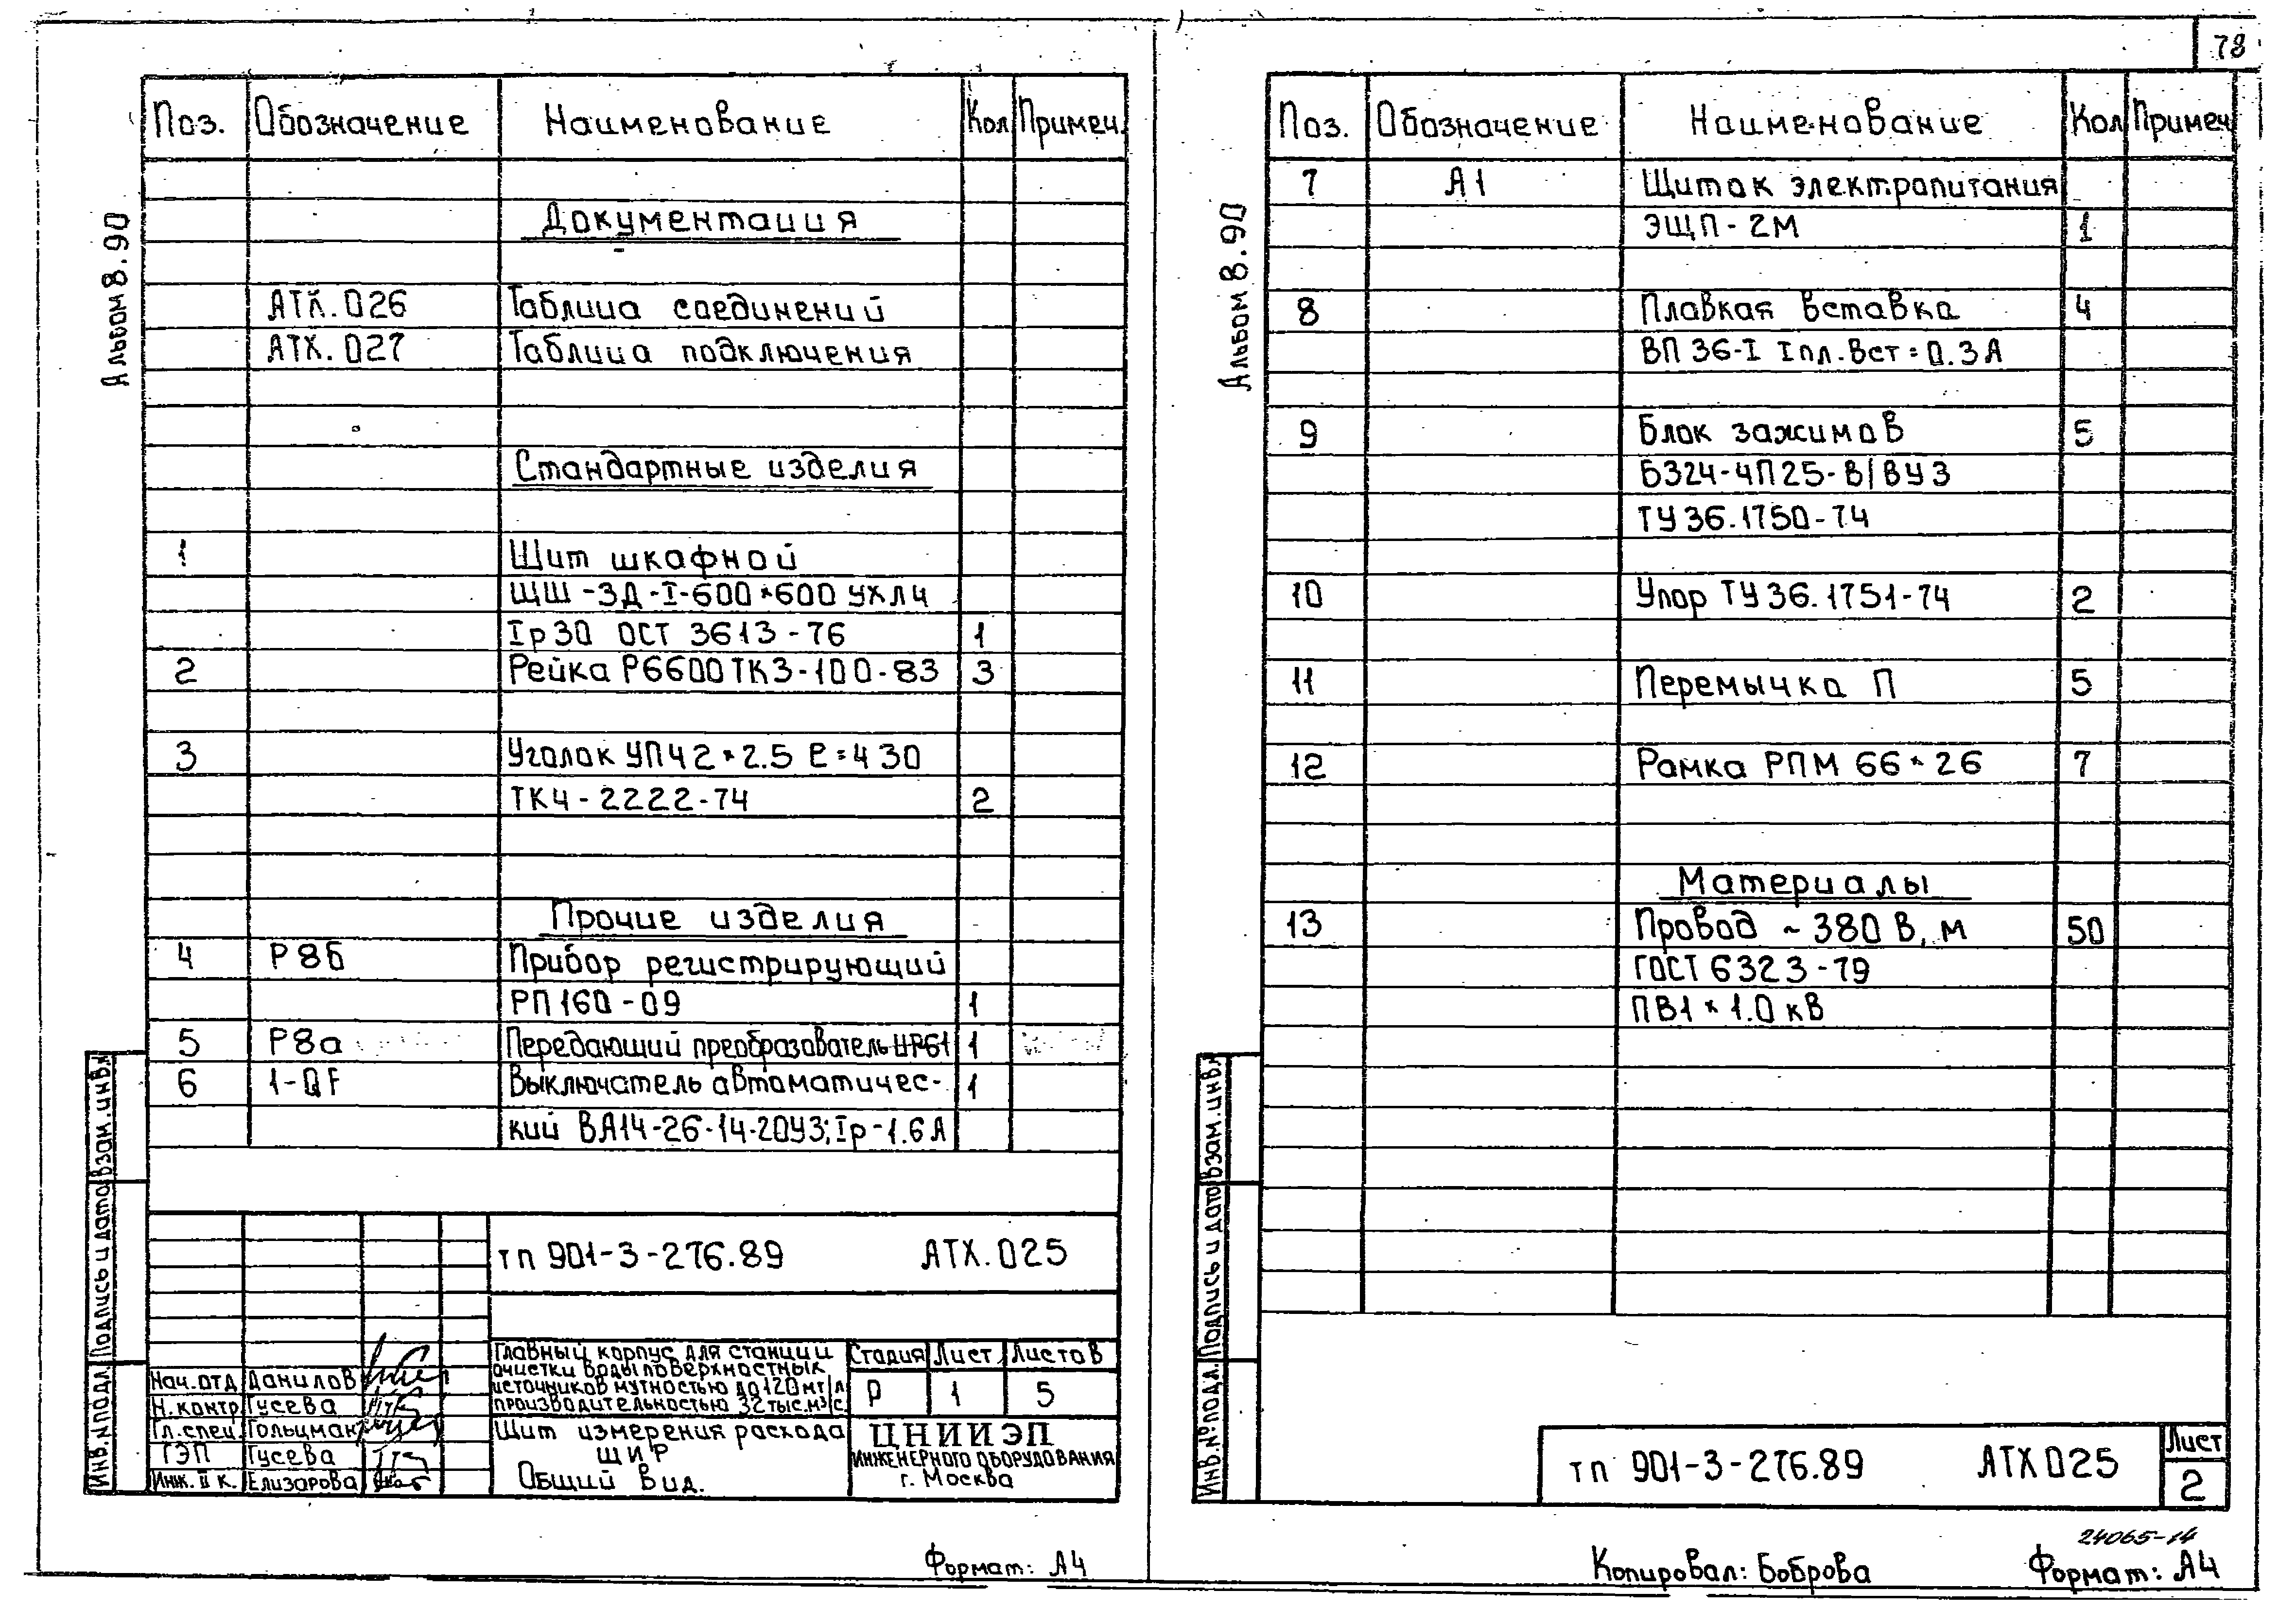 78
Альбом 8.90
Поз. Обозначение Наименование Кол Примеч.
Документация
АТХ.026 Таблица соединений
АТХ.027 Таблица подключения
Стандартные изделия
1 Щит шкафной
ЩШ-ЗД-I-600*600 УХЛ4
Iр30 ОСТ 3613-76 1
2 Рейка Р6600ТК3-100-83 3
3 Уголок УП42*2.5 ℓ=430
ТК4-2222-74 2
Прочие изделия
4 Р8б Прибор регистрирующий
РП160-09 1
5 Р8а Передающий преобразователь НР61 1
6 1-QF Выключатель автоматичес- 1
кий ВА14-26-14-20У3; Iр-1.6А
Взам.инв.№
Подпись и дата
Инв.№подл.
тп 901-3-276.89 АТХ.025
Главный корпус для станции
очистки воды поверхностных
источников мутностью до 120 мг/л
производительностью 32 тыс.м³/с.
Стадия Лист Листов
Р 1 5
Нач.отд Данилов
Н.контр Гусева
Гл.спец. Гольцман
ГЭП Гусева
Инж. II к. Елизарова
Щит измерения расхода
ЩИР
Общий вид.
ЦНИИЭП
ИНЖЕНЕРНОГО ОБОРУДОВАНИЯ
г. Москва
Формат: А4
Альбом 8.90
Поз. Обозначение Наименование Кол Примеч
7 А1 Щиток электропитания
ЭЩП-2М 1
8 Плавкая вставка 4
ВП36-I Iпл.вст=0.3А
9 Блок зажимов 5
БЗ24-4П25-В/ВУ3
ТУ36.1750-74
10 Упор ТУ36.1751-74 2
11 Перемычка П 5
12 Рамка РПМ 66*26 7
Материалы
13 Провод ~380 В, м 50
ГОСТ 6323-79
ПВ1*1.0 кВ
Взам.инв.№
Подпись и дата
Инв.№подл.
тп 901-3-276.89 АТХ025
Лист
2
24065-14
Копировал: Боброва Формат: А4